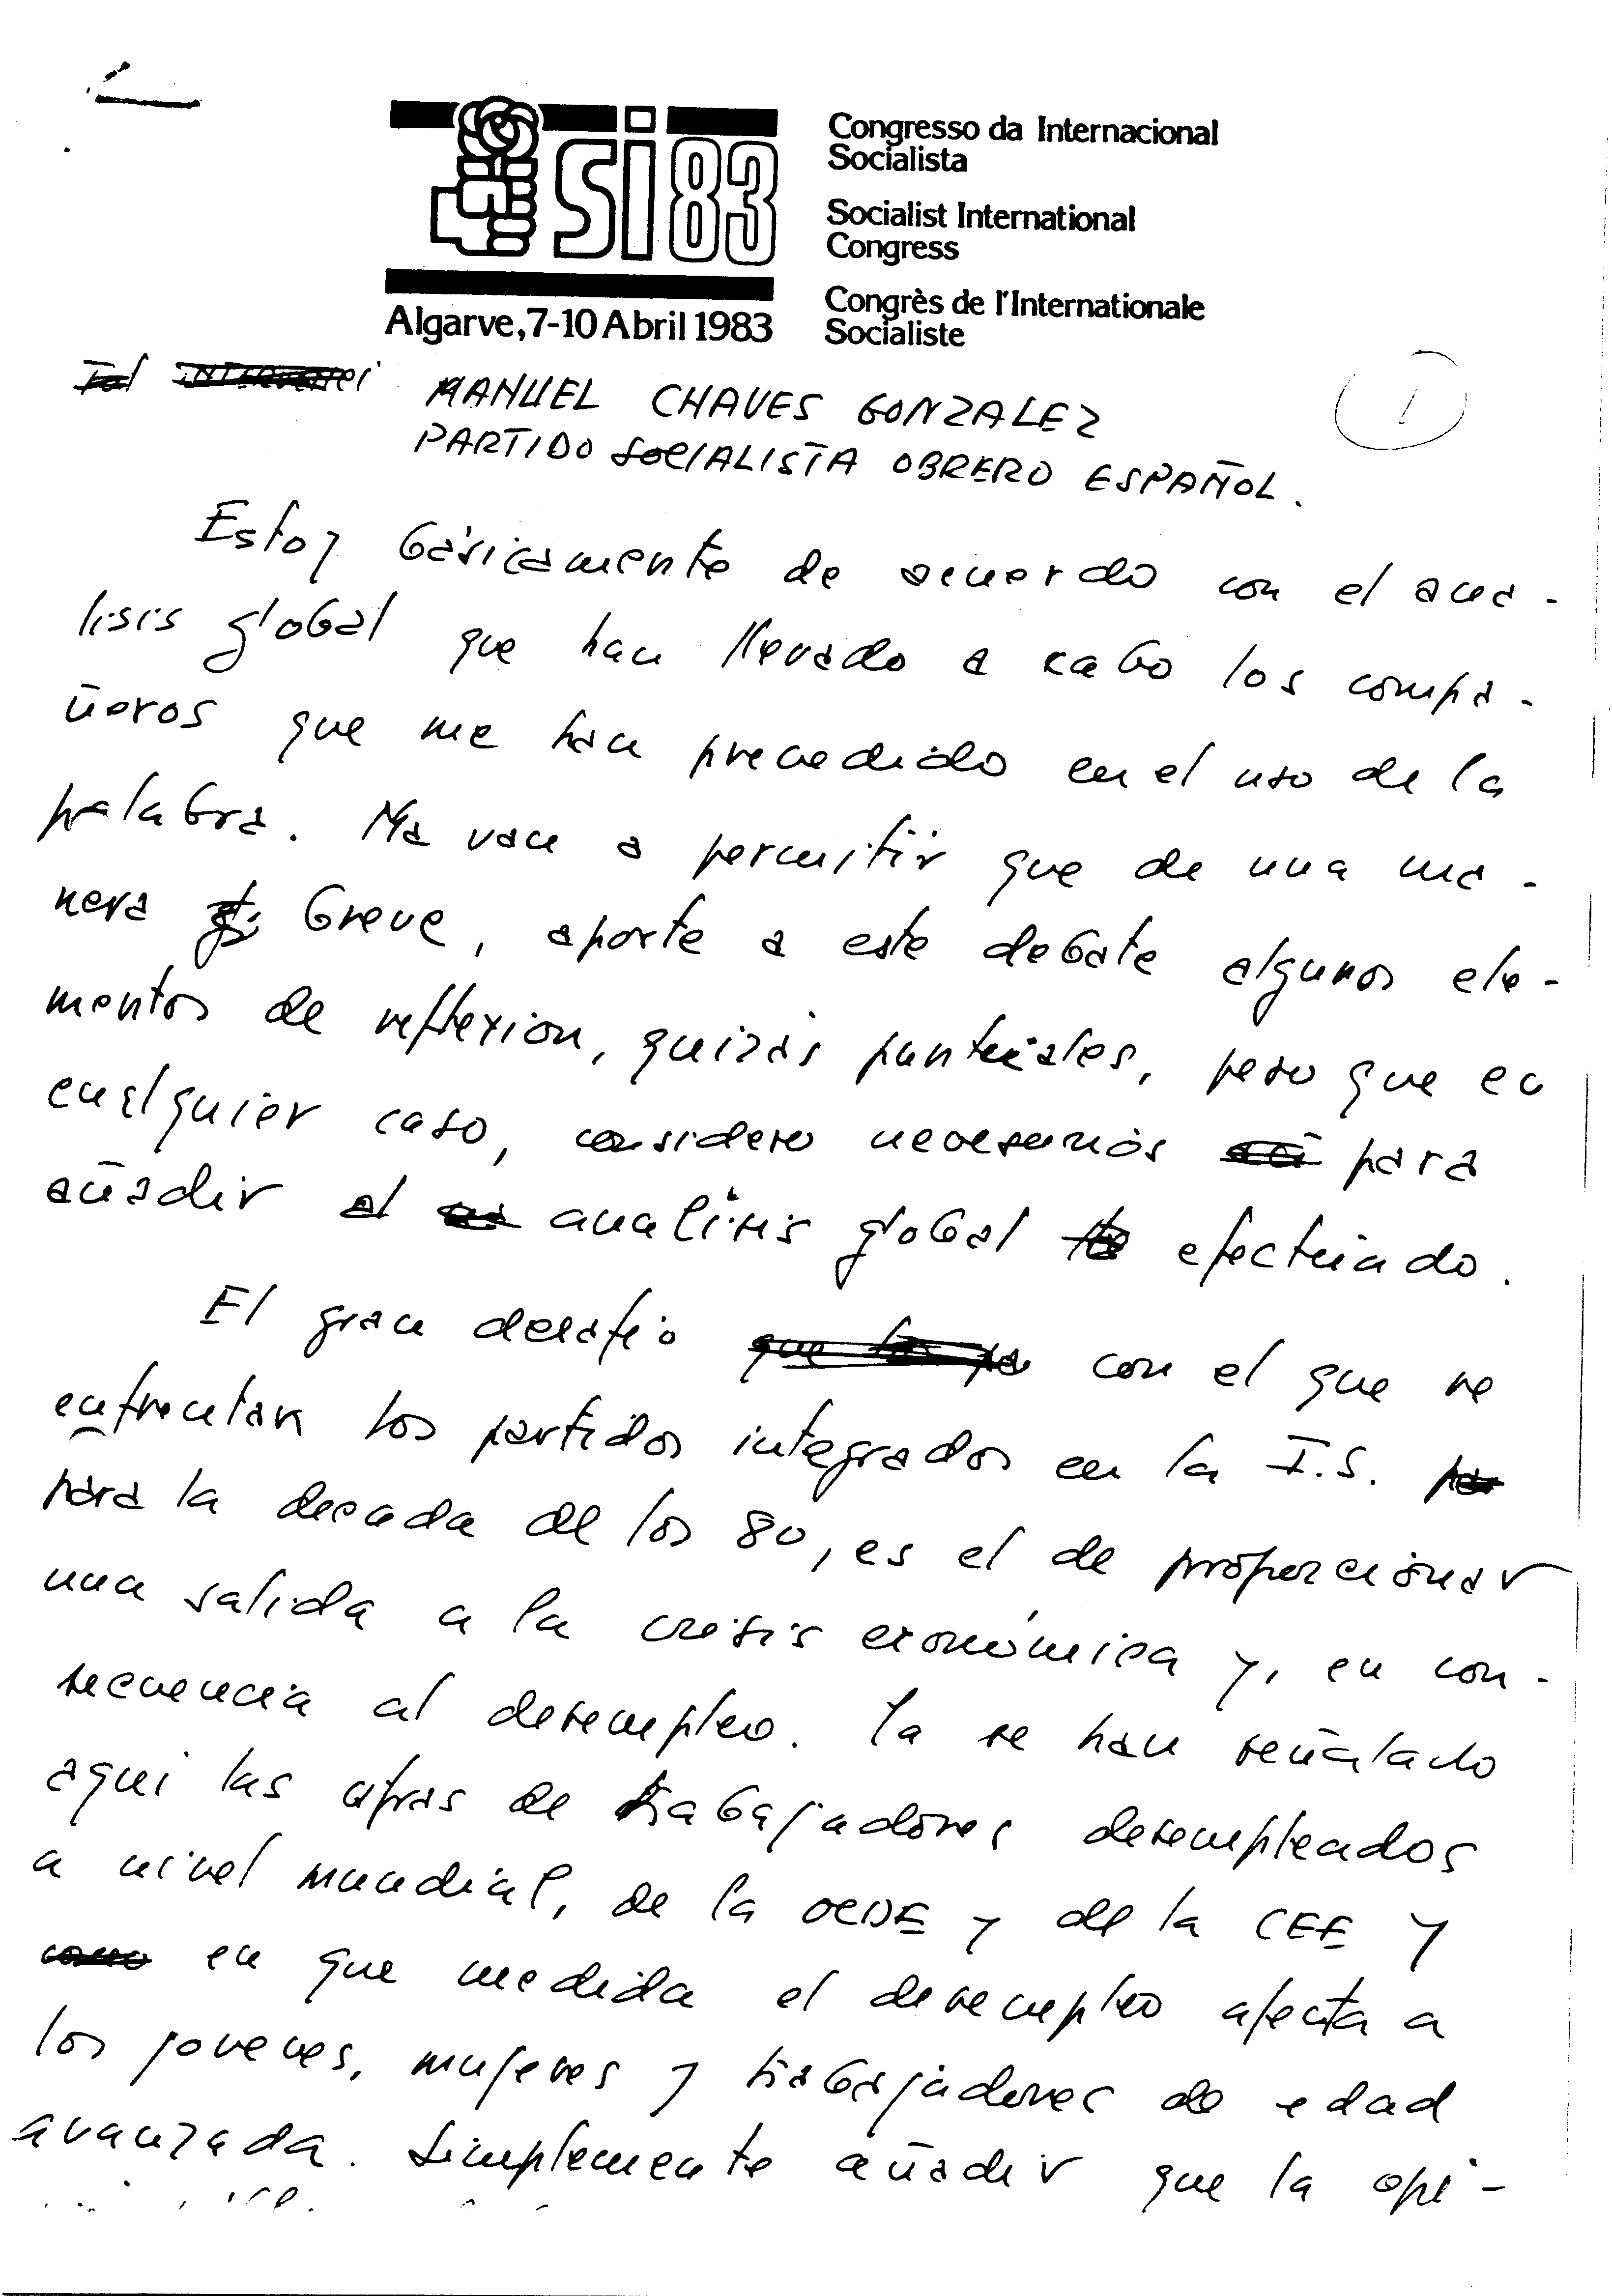 si83
Congresso da Internacional
Socialista
Socialist International
Congress
Congrès de l'Internationale
Socialiste
Algarve, 7-10 Abril 1983
1
MANUEL CHAVES GONZALEZ
PARTIDO SOCIALISTA OBRERO ESPAÑOL.
Estoy básicamente de acuerdo con el aná-
lisis global que han llevado a cabo los compa-
ñeros que me han precedido en el uso de la
palabra. Me van a permitir que de una ma-
nera breve, aporte a este debate algunos ele-
mentos de reflexion, quizás puntuales, pero que en
cualquier caso, considero necesarios para
añadir al analisis global efectuado.
El gran desafio con el que se
enfrentan los partidos integrados en la I.S.
para la decada de los 80, es el de proporcionar
una salida a la crisis económica y, en con-
secuencia al desempleo. Ya se han señalado
aqui las cifras de trabajadores desempleados
a nivel mundial, de la OCDE y de la CEE y
en que medida el desempleo afecta a
los jovenes, mujeres y trabajadores de edad
avanzada. Simplemente añadir que la opi-